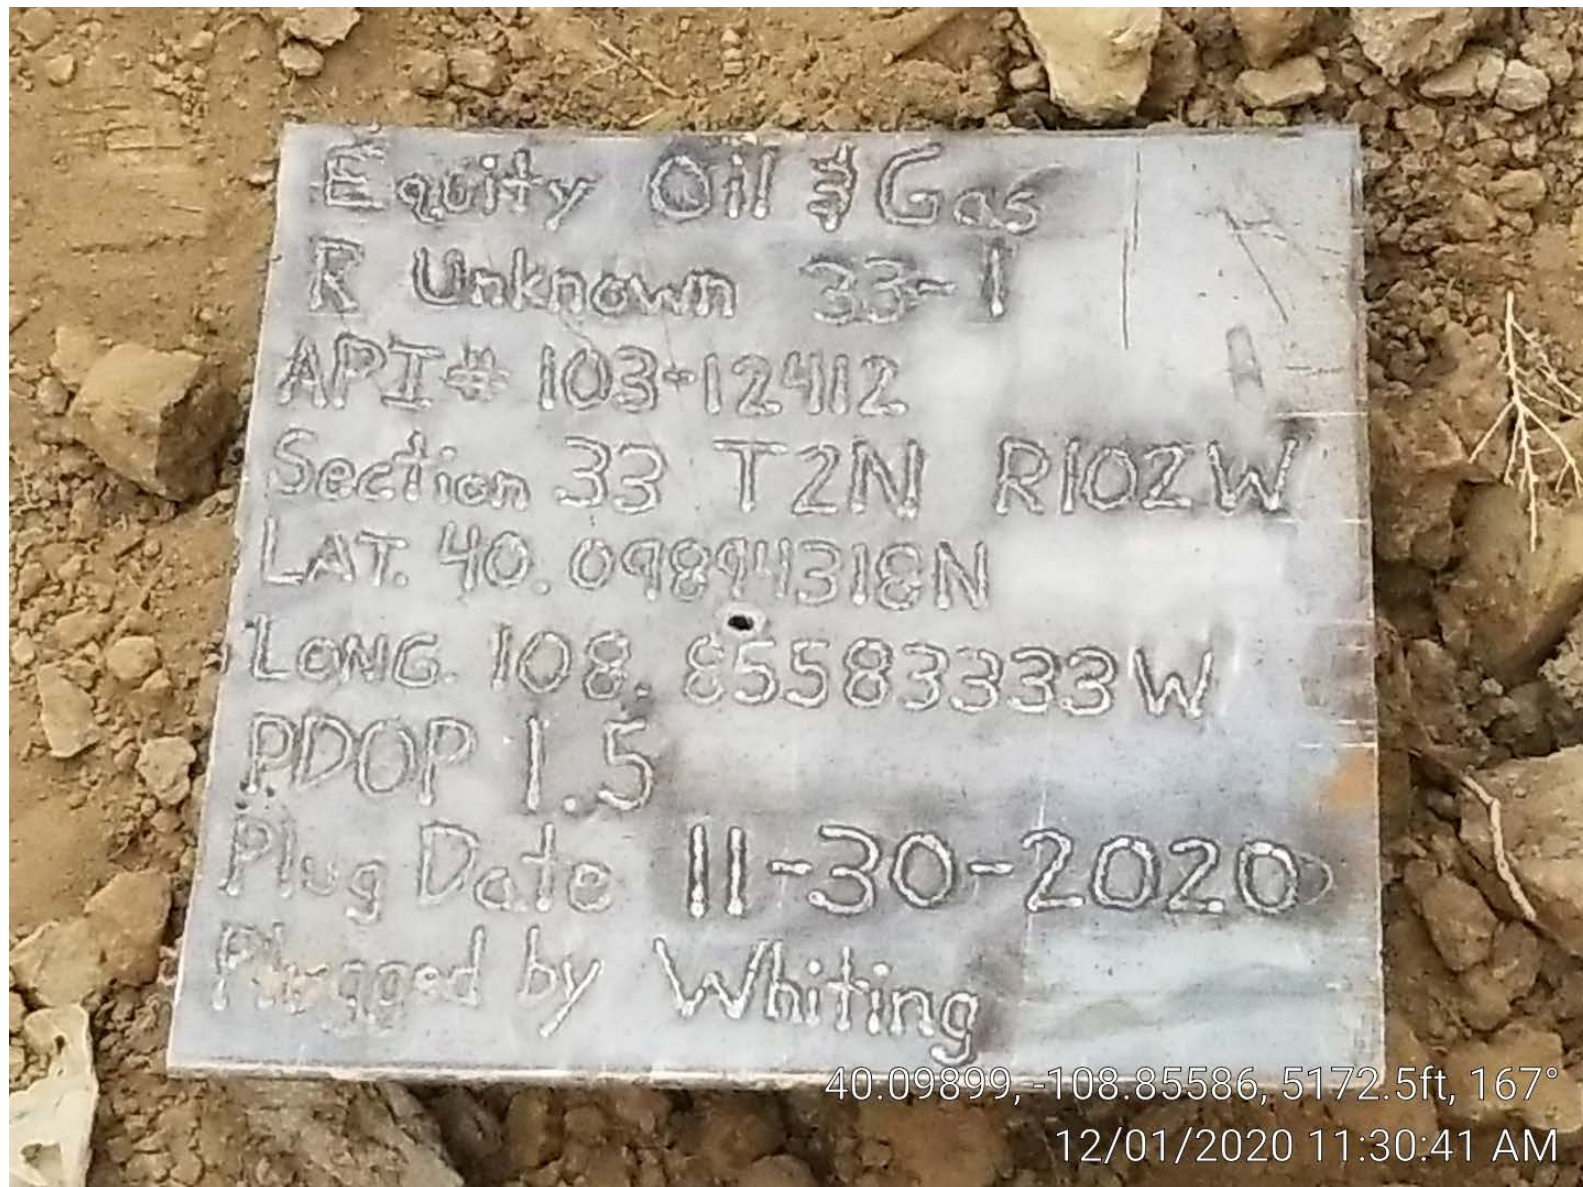 Equity Oil & Gas
R Unknown 33-1
API# 103-12412
Section 33 T2N R102W
LAT. 40.09894318N
LONG. 108.85583333W
PDOP 1.5
Plug Date 11-30-2020
Plugged by Whiting
40.09899, -108.85586, 5172.5ft, 167°
12/01/2020 11:30:41 AM